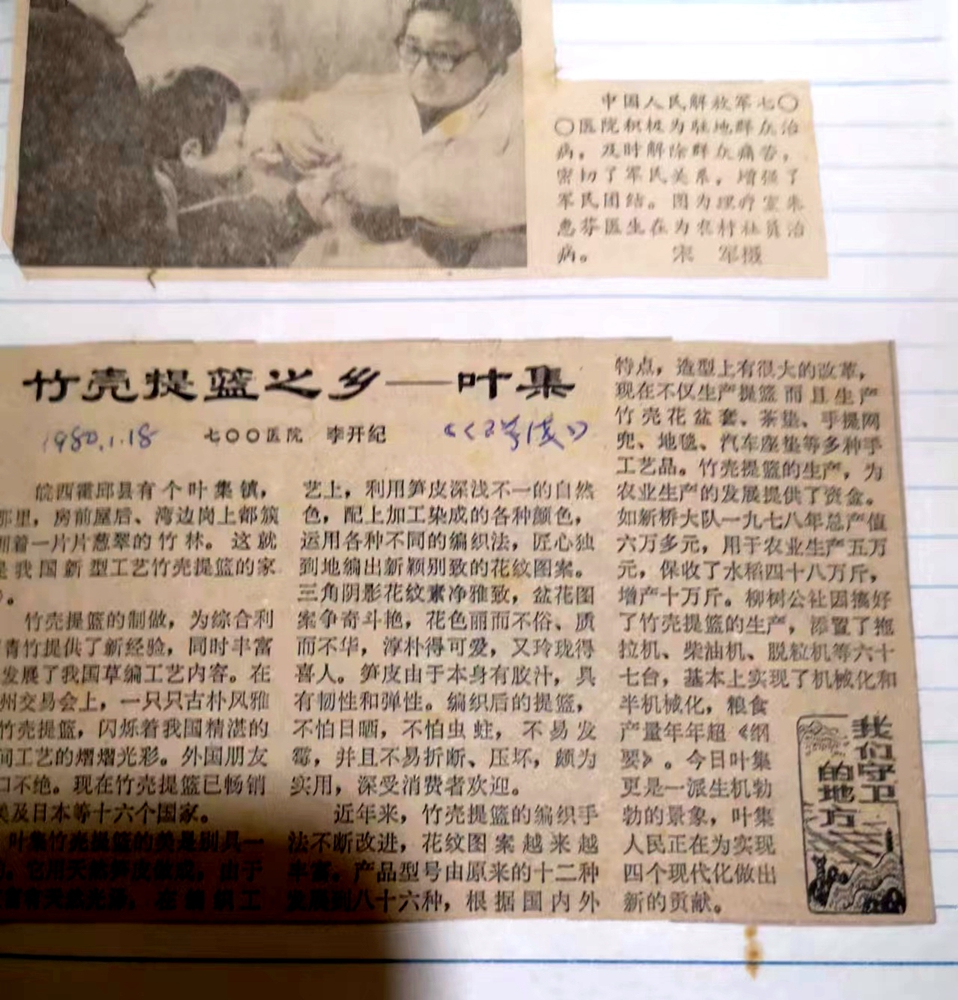 中国人民解放军七〇
〇医院积极为驻地群众治
病，及时解除群众痛苦，
密切了军民关系，增强了
军民团结。图为理疗室朱
惠芬医生在为农村社员治
病。 宋 军摄
竹壳提篮之乡——叶集
1980.1.18 七〇〇医院 李开纪
皖西霍邱县有个叶集镇，
那里，房前屋后、湾边岗上都簇
拥着一片片葱翠的竹林。这就
是我国新型工艺竹壳提篮的家
。
竹壳提篮的制做，为综合利
青竹提供了新经验，同时丰富
发展了我国草编工艺内容。在
州交易会上，一只只古朴风雅
竹壳提篮，闪烁着我国精湛的
间工艺的熠熠光彩。外国朋友
口不绝。现在竹壳提篮已畅销
美及日本等十六个国家。
叶集竹壳提篮的美是别具一
。它用天然笋皮做成。由于
有天然光泽，在编织工
艺上，利用笋皮深浅不一的自然
色，配上加工染成的各种颜色，
运用各种不同的编织法，匠心独
到地编出新颖别致的花纹图案。
三角阴影花纹素净雅致，盆花图
案争奇斗艳，花色丽而不俗、质
而不华，淳朴得可爱，又玲珑得
喜人。笋皮由于本身有胶汁，具
有韧性和弹性。编织后的提篮，
不怕日晒，不怕虫蛀，不易发
霉，并且不易折断、压坏，颇为
实用，深受消费者欢迎。
近年来，竹壳提篮的编织手
法不断改进，花纹图案越来越
丰富。产品型号由原来的十二种
发展到八十六种，根据国内外
特点，造型上有很大的改革，
现在不仅生产提篮而且生产
竹壳花盆套、茶垫、手提网
兜、地毯、汽车座垫等多种手
工艺品。竹壳提篮的生产，为
农业生产的发展提供了资金。
如新桥大队一九七八年总产值
六万多元，用于农业生产五万
元，保收了水稻四十八万斤，
增产十万斤。柳树公社因搞好
了竹壳提篮的生产，添置了拖
拉机、柴油机、脱粒机等六十
七台，基本上实现了机械化和
半机械化，粮食
产量年年超《纲
要》。今日叶集
更是一派生机勃
勃的景象，叶集
人民正在为实现
四个现代化做出
新的贡献。
我们守卫
的地方